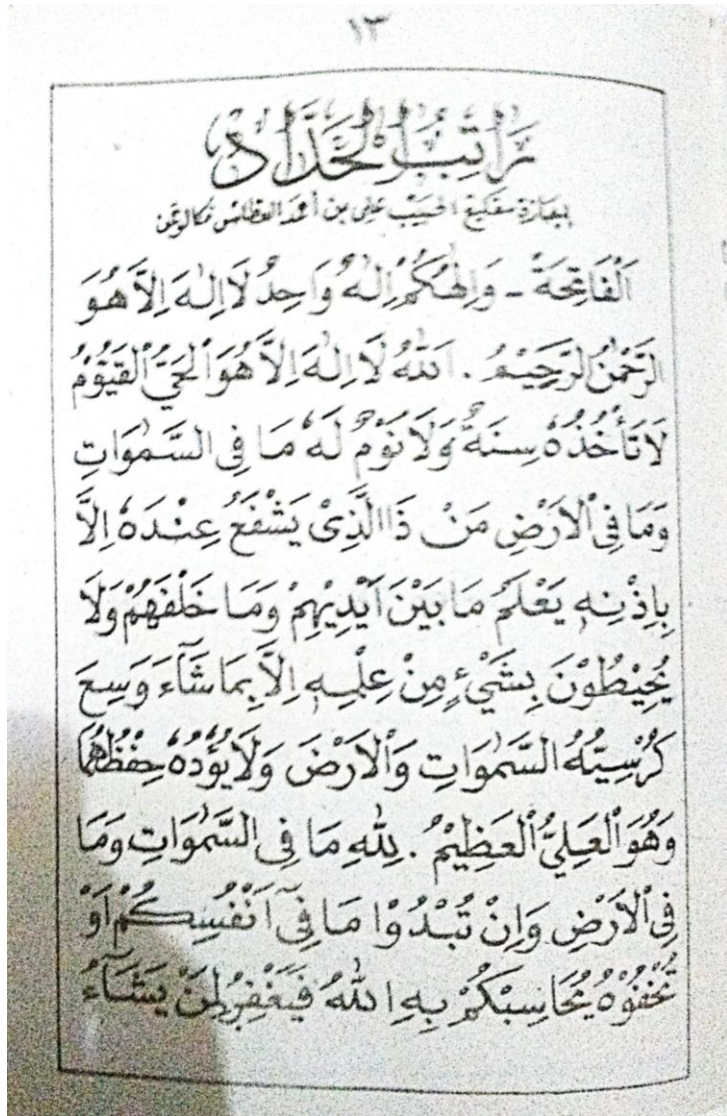 ١٣
رَاتِبُ الْحَدَّادْ
الحبيب علي بن أحمد العطاس
اَلْفَاتِحَةَ - وَاِلٰهُكُمْ اِلٰهٌ وَاحِدٌ لَا اِلٰهَ اِلَّا هُوَ
الرَّحْمٰنُ الرَّحِيْمُ . اَللّٰهُ لَا اِلٰهَ اِلَّا هُوَ الْحَيُّ الْقَيُّوْمُ
لَا تَأْخُذُهٗ سِنَةٌ وَلَا نَوْمٌ لَهٗ مَا فِى السَّمٰوَاتِ
وَمَا فِى الْاَرْضِ مَنْ ذَا الَّذِىْ يَشْفَعُ عِنْدَهٗ اِلَّا
بِاِذْنِهٖ يَعْلَمُ مَا بَيْنَ اَيْدِيْهِمْ وَمَا خَلْفَهُمْ وَلَا
يُحِيْطُوْنَ بِشَيْءٍ مِنْ عِلْمِهٖ اِلَّا بِمَا شَآءَ وَسِعَ
كُرْسِيُّهُ السَّمٰوَاتِ وَالْاَرْضَ وَلَا يَؤُدُهٗ حِفْظُهُمَا
وَهُوَ الْعَلِيُّ الْعَظِيْمُ . لِلّٰهِ مَا فِى السَّمٰوَاتِ وَمَا
فِى الْاَرْضِ وَاِنْ تُبْدُوْا مَا فِىْٓ اَنْفُسِكُمْ اَوْ
تُخْفُوْهُ يُحَاسِبْكُمْ بِهِ اللّٰهُ فَيَغْفِرُ لِمَنْ يَشَآءُ